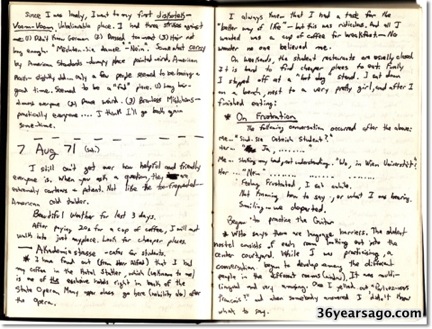 Since I was lonely, I went to my first diskotek-
Voom-Voom. Unbelievable place. I had three strikes against
me: (1) Didn't know German (2) Dressed too neat (3) Hair not
long enough. Mädchen-sie dance - Nein. Somewhat corny
by American Standards - dumpy place painted winds, American
Music - slightly dim. only a few people seemed to be having a
good time. Seemed to be a "fad" place. (1) long hair-
demons everyone (2) Dance weird. (3) Braless Mädchens -
practically everyone.... I think I'll go back again
some-time.
7 Aug 71 (sat.)
I still can't get over how helpful and friendly
everyone is. When you ask a question, they are
extremely courteous & patient. Not like the
American cold shoulder.
Beautiful weather for last 3 days.
After paying 20s for a cup of coffee, I will not
walk into just anyplace. Look for cheaper places.
— Akademiestrasse - cafes for students.
* I have found out (from slow waiter) that I had
my coffee in the Hotel Sacher, which (unknown to me)
is one of this exclusive hotels right in back of the
State Opera. Many upper class go here (nobility also) after
the Opera.
I always knew that I had a taste for the
"better way of life" - but this was ridiculous. And all I
wanted was a cup of coffee for breakfast - No
wonder no one believed me.
On weekends, the student restaurants are usually closed.
It is hard to find cheaper places to eat. Finally
I stopped off at a "hot dog" stand. I sat down
on a bench, next to a very pretty girl, and after I
finished eating:
* On Frustration
The following conversation occurred after the above:
Me - "Sind sie Österreich Student?"
Her - Ja,
Me - thinking my bad, not understanding. "Uh, in Wien Universität?"
Her - "Nein
Feeling frustrated, I sat awhile.
Not knowing how to say, or what I was hearing.
Smiling, we departed.
Began to practice the Guitar
* Who says there are language barriers. The student
hostel consists of each room looking out into the
center courtyard. While I was practicing, a
conversation began to develop among the different
people in the different rooms (windows). It was multi-
lingual and very amusing. Once I yelled out "Parlez-vous
français?" and when somebody answered I didn't know
what to say.
36yearsago.com